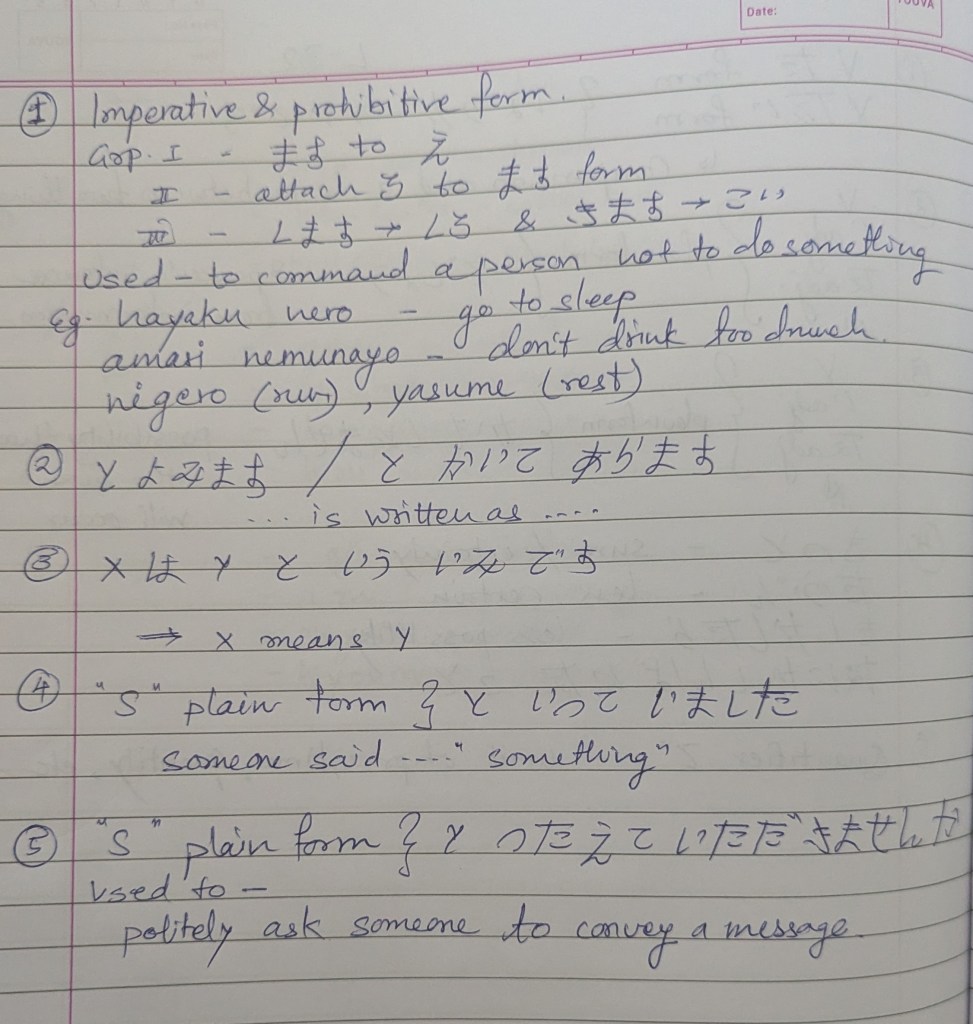 Date:
YOUVA
① Imperative & prohibitive form.
Grp. I - ます to え
II - attach ろ to ます form
III - します → しろ & きます → こい
used - to command a person not to do something
Eg. hayaku nero - go to sleep
amari nemunayo - don't drink too much.
nigero (run), yasume (rest)
② とよみます / と かいて あります
... is written as ....
③ X は Y と いう いみ です
⇒ X means Y
④ "S" plain form } と いって いました
someone said ...." something"
⑤ "S" plain form } と つたえて いただきませんか
used to -
politely ask someone to convey a message.